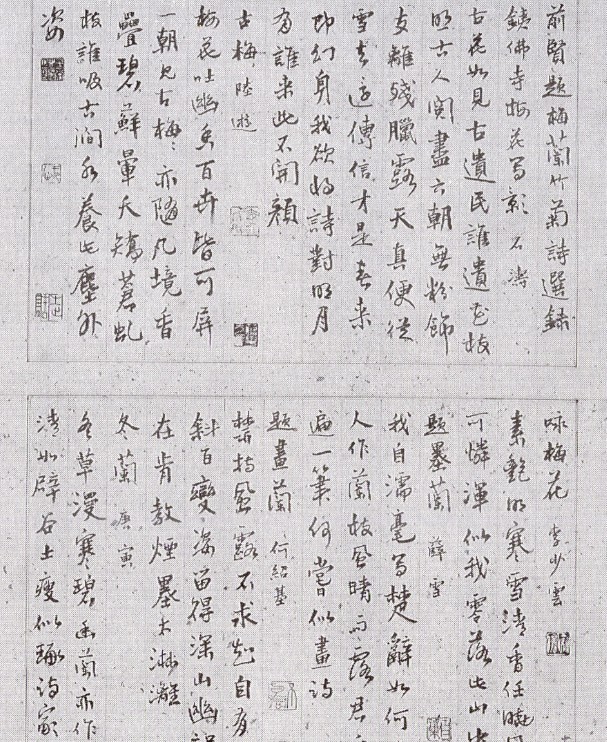 前賢題梅蘭竹菊詩選錄
鐵佛寺梅花寫影 石濤
古花如見古遺民誰遣花枝
照古人閱盡六朝無粉飾
支離殘臘露天真便從
雪去傳信才是春來
即幻身我欲將詩對明月
為誰來此不開顏
古梅 陸游
梅花吐幽香百卉皆可屏
一朝見古梅々亦墮凡境重
疊碧蘚暈夭矯蒼虬
枝誰汲古澗水養此塵外
姿
詠梅花 李少雲
素艷明寒雪清香任曉風
可憐渾似我零落此山
題墨蘭 薛雪
我自濡毫寫楚辭如何
人作蘭枝風晴雨露君
遍一筆何嘗似畫詩
題畫蘭 何紹基
風露不求知自有
斜百變姿留得深山幽
在肯教煙墨太淋灕
冬蘭 唐寅
冬草漫寒碧幽蘭亦作
清如辟谷士瘦似琢詩家